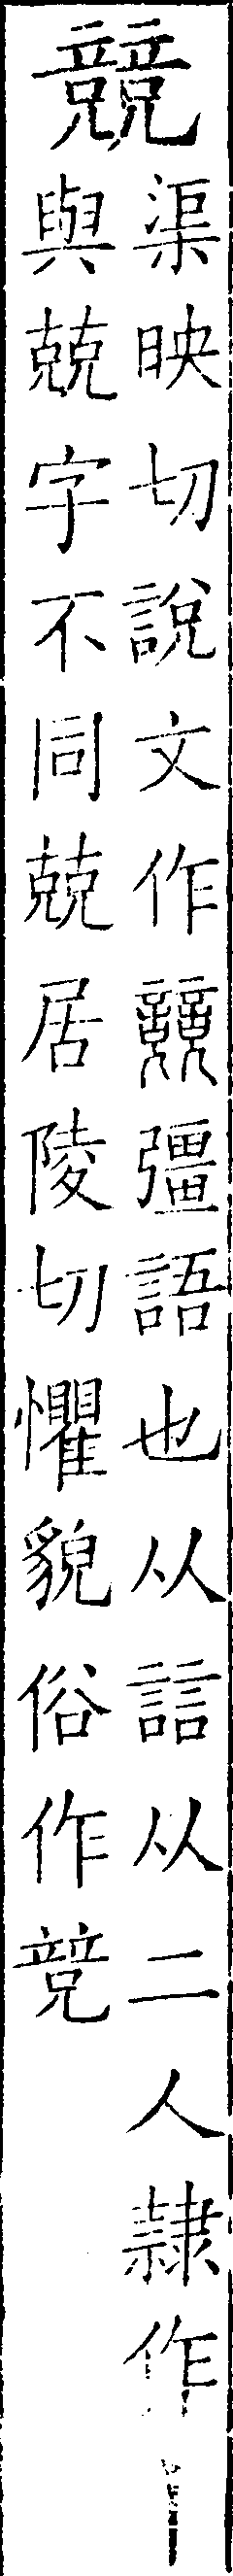 競
渠映切說文作競彊語也从誩从二人隸作
與兢字不同兢居陵切懼貌俗作竞